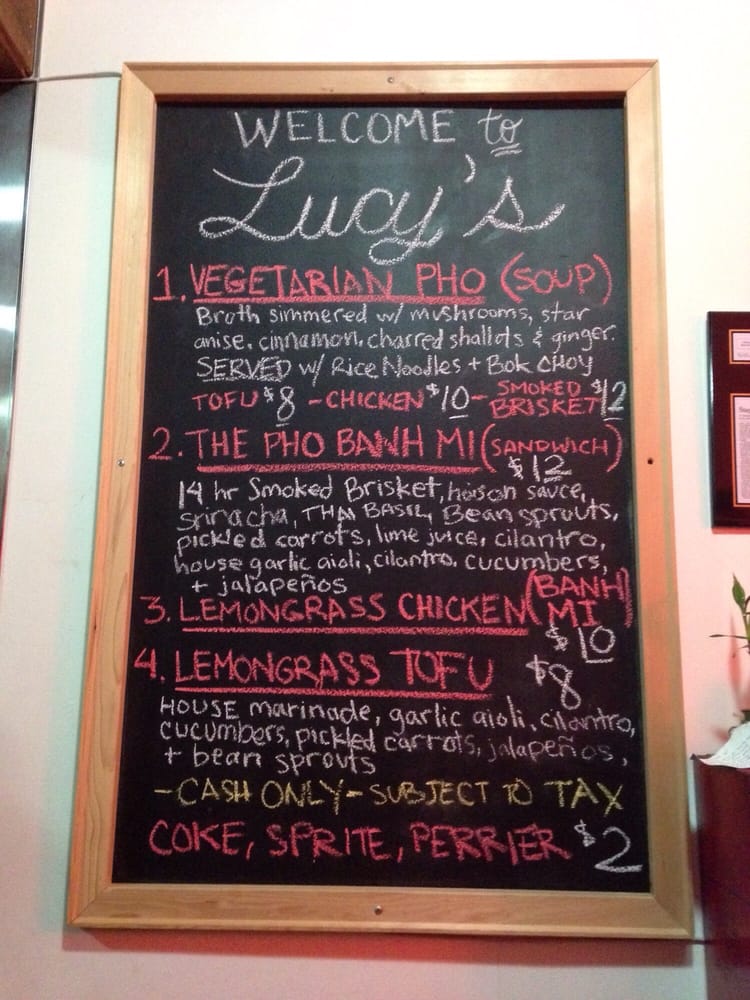 WELCOME to
Lucy's
1. VEGETARIAN PHO (SOUP)
Broth simmered w/ mushrooms, star
anise, cinnamon, charred shallots & ginger.
SERVED w/ Rice Noodles + Bok CHOY
TOFU $8 - CHICKEN $10 - SMOKED BRISKET $12
2. THE PHO BANH MI (SANDWICH)
$12
14 hr Smoked Brisket, hoison sauce,
Sriracha, THAI BASIL, Bean sprouts,
pickled carrots, lime juice, cilantro,
house garlic aioli, cilantro, cucumbers,
+ jalapeños
3. LEMONGRASS CHICKEN (BANH MI)
$10
4. LEMONGRASS TOFU $8
HOUSE marinade, garlic aioli, cilantro,
cucumbers, pickled carrots, jalapeños,
+ bean sprouts
- CASH ONLY - SUBJECT TO TAX
COKE, SPRITE, PERRIER $2